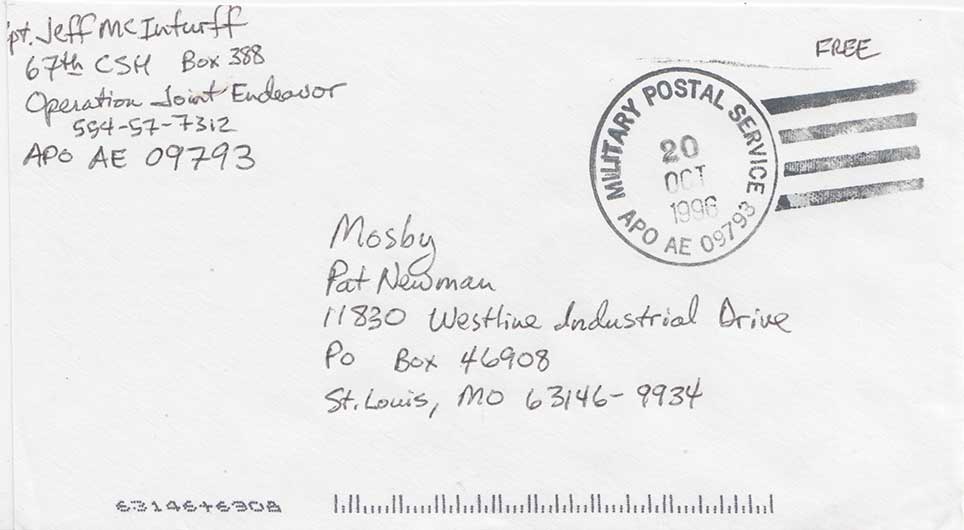 pt. Jeff McInturff
67th CSH Box 388
Operation Joint Endeavor
594-57-7312
APO AE 09793
FREE
MILITARY POSTAL SERVICE
20
OCT
1996
APO AE 09793
Mosby
Pat Newman
11830 Westline Industrial Drive
PO Box 46908
St. Louis, MO 63146-9934
6314646908